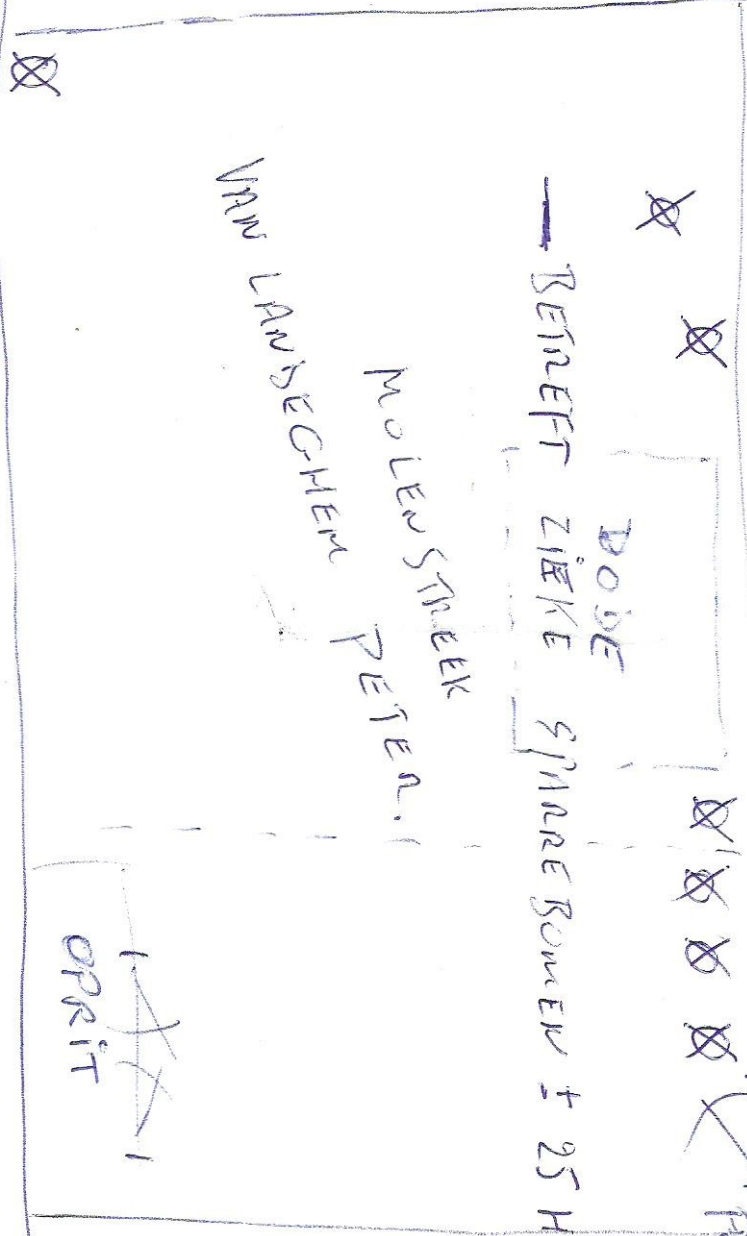 DODE
— BETREFT ZIEKE SPARREBOMEN ± 25 H
MOLENSTREEK
VAN LANDEGHEM PETER.
OPRIT